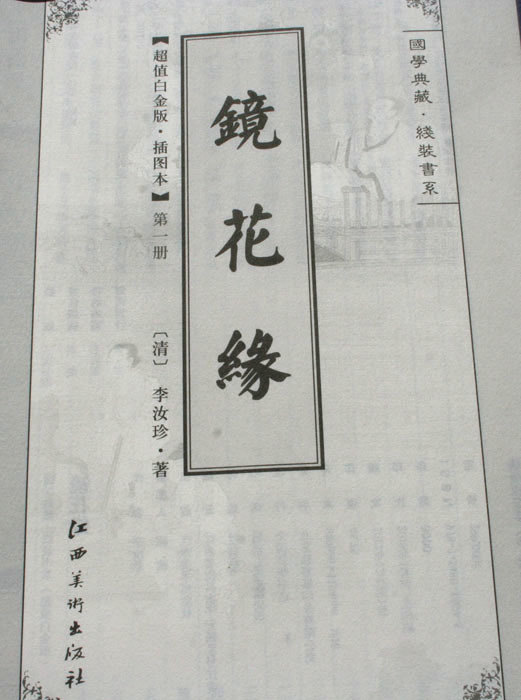 國學典藏·綫裝書系
鏡花緣
【超值白金版·插图本】第一册
〔清〕李汝珍·著
江西美术出版社